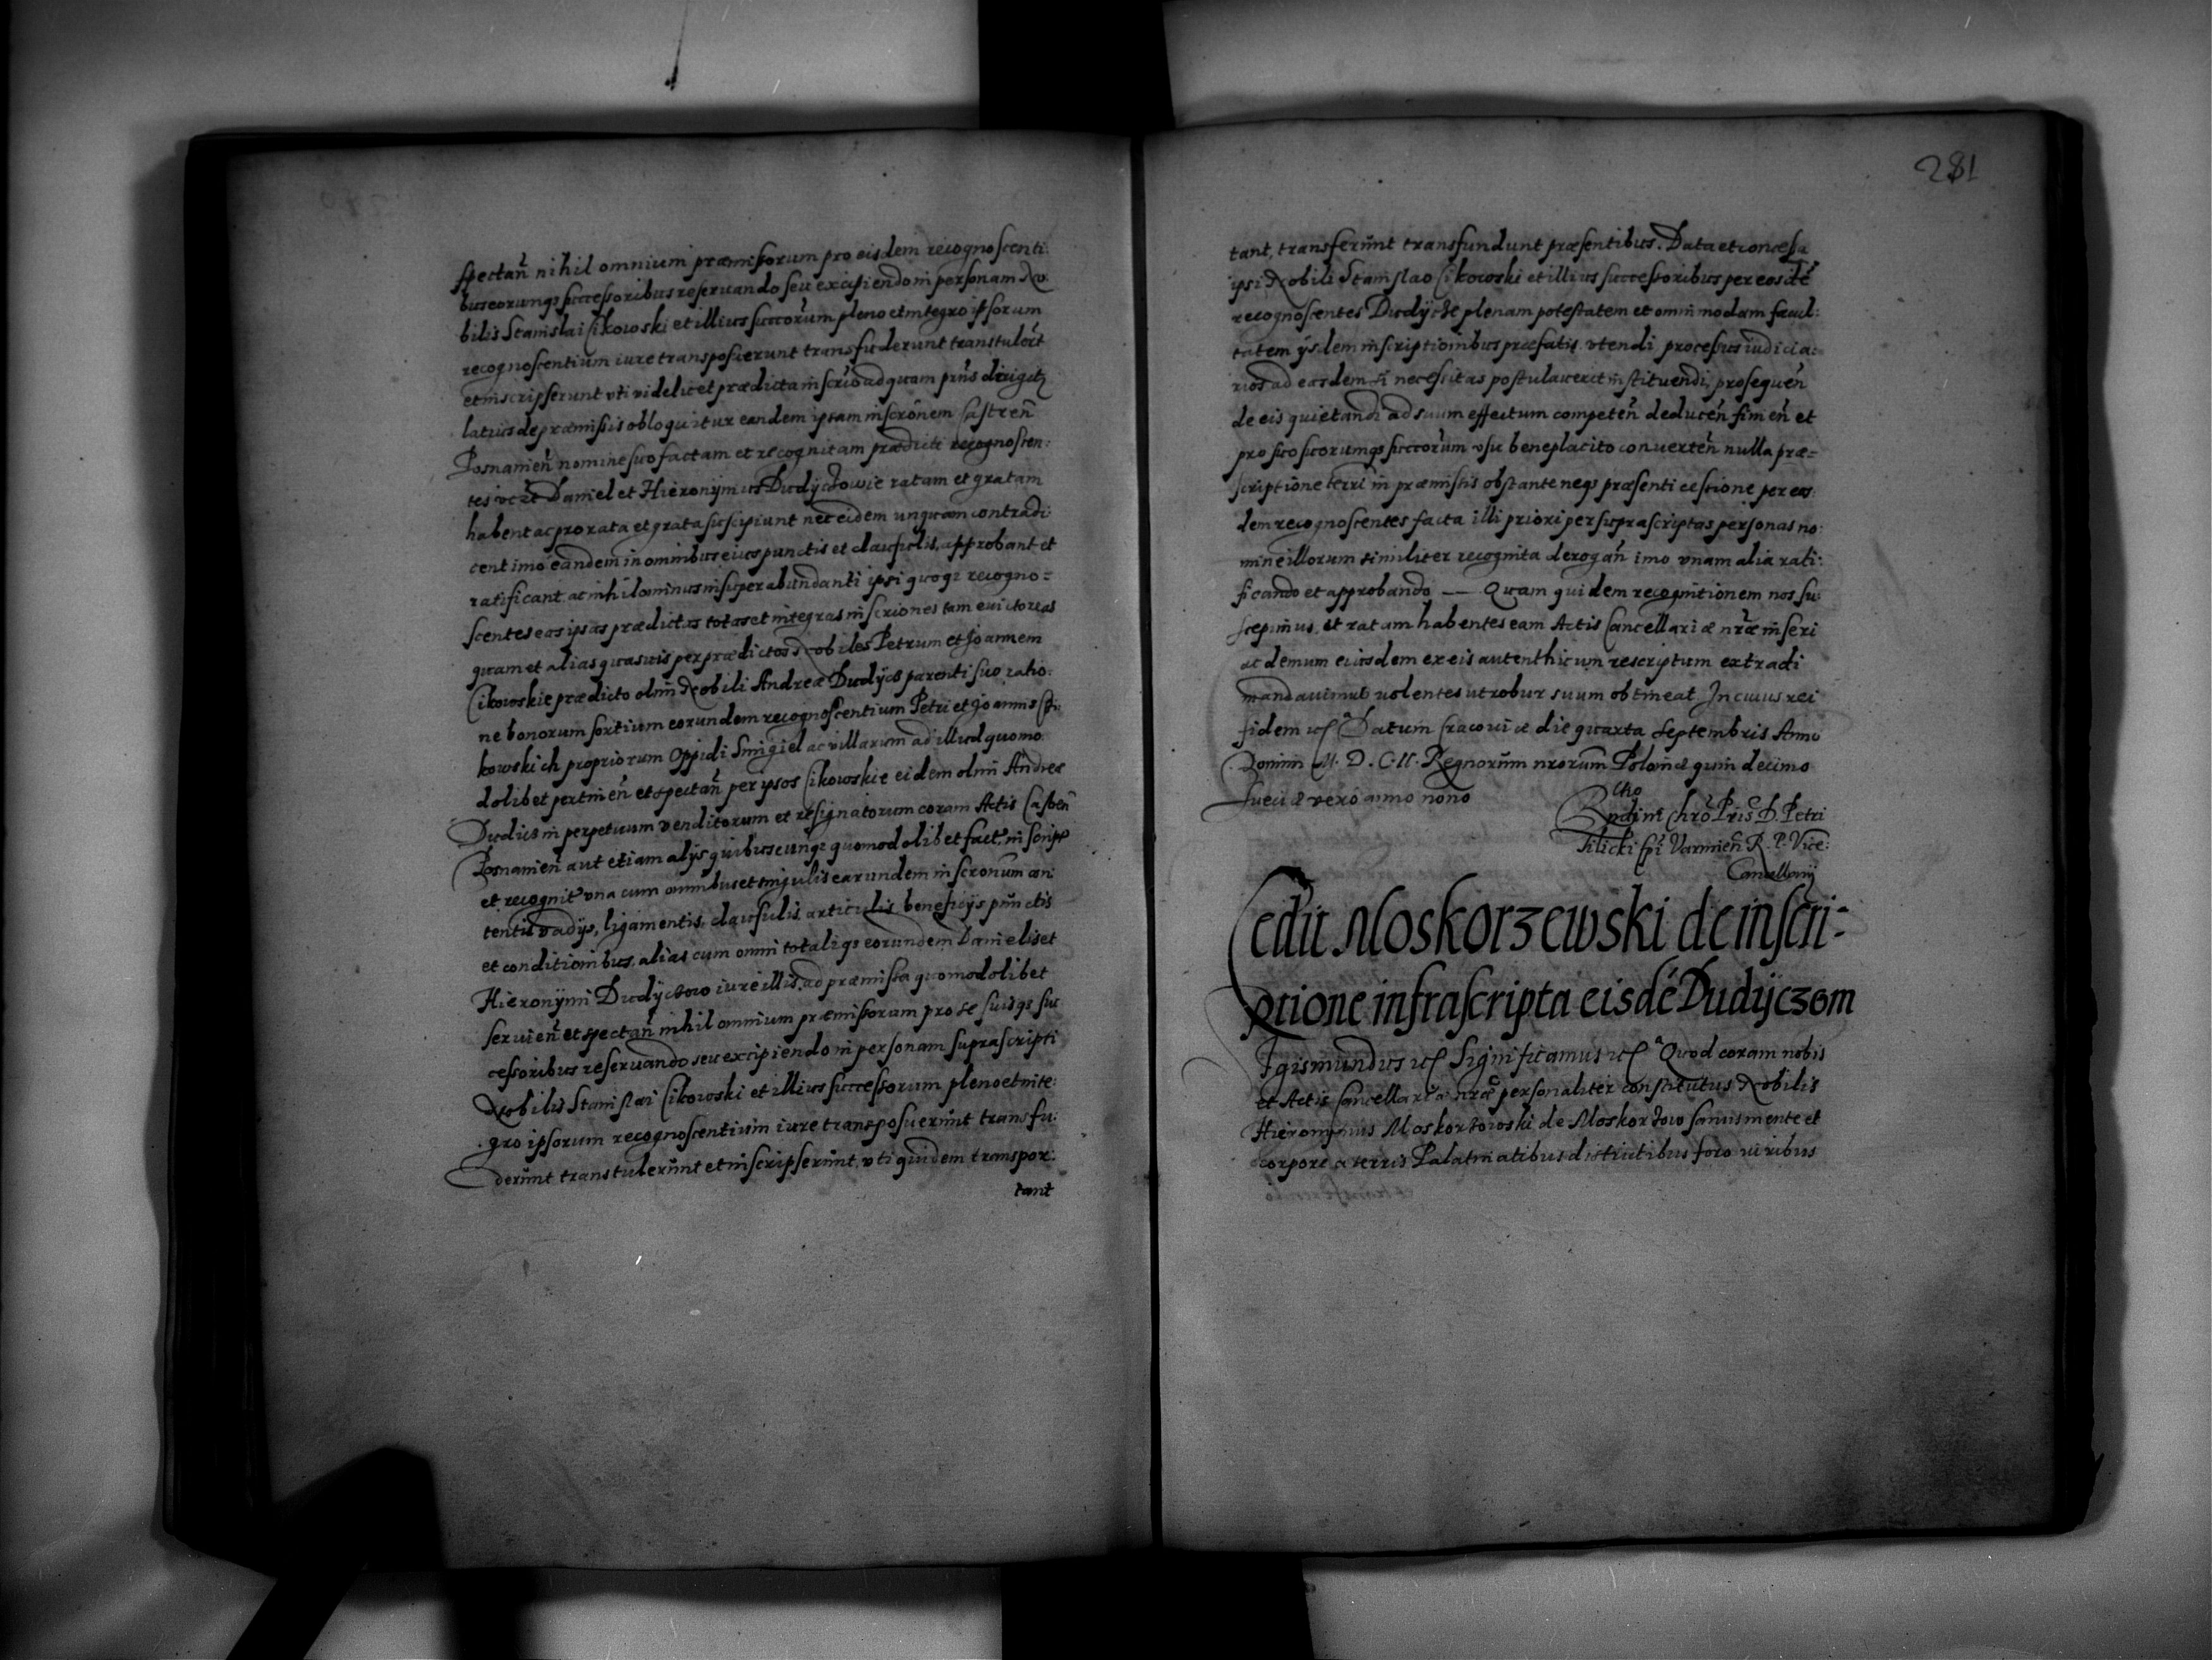 spectan̄ nihil omnium præmissorum pro eisdem recognoscenti:
bus eorumq3 successoribus reseruando seu excipiendo in personam No:
bilis Stanislai Cikowski et illius succorūm pleno et integro ipsorum
recognoscentium iure transposuerunt transfuderunt transtulerūt
et inscripserunt vti videlicet prædicta inscrīo ad quam pn̄s dirigit̃
latius de præmissis obloquitur eandem ipsam inscrōnem Castren̄
Posnanien̄ nomine suo factam et recognitam prædicti recognoscen:
tes vczt Daniel et Hieronÿmus Dudÿczowie ratam et gratam
habent ac pro rata et grata suscipiunt nec eidem unquam contradi:
cent imo eandem in omnibus eius punctis et clausulis, approbant et
ratificant. at nihilominus in superabundanti ipsi quoq3 recogno=
scentes eas ipsas prædictas totas et integras inscriones tam euictorias
quam et alias quasuis per prædictos Nobiles Petrum et Joannem
Cikowskie prædicto olim Nobili Andreæ Dudÿcz parenti suo ratio:
ne bonorum sortium eorundem recognoscentium Petri et Joannis Ci:
kowskich propriorum Oppidi Smigiel ac villarum ad illud quomo
dolibet pertinen̄ et spectan̄ per ipsos Cikowskie eidem olim Andreæ
Dudicz in perpetuum venditorum et resignatorum coram Actis Castren̄
Posnanien̄ aut etiam alÿs quibuscunq3 quomodolibet fact. inscript.
et recognit. vna cum omnibus et singulis earundem inscronūm con:
tentis vadÿs, ligamentis, clausulis articulis beneficÿs pūnctis
et conditionibus, alias cum omni totaliq3 eorundem Danielis et
Hieronÿmi Dudÿczow iure illis, ad præmissa quomodolibet
seruien̄ et spectan̄ nihil omnium præmissorum pro se suisq3 suc
cessoribus reseruando seu excipiendo in personam suprascripti
Nobilis Stanislai Cikowski et illius successorum pleno et inte:
gro ipsorum recognoscentium iure transposuerūnt transfu:
derūnt transtulerūnt et inscripserūnt, vti quidem transpor:
tant
281
tant, transferūnt transfundunt præsentibus. Data et concessa
ipsi Nobili Stanislao Cikowski et illius successoribus per eosdē
recognoscentes Dudÿcze plenam potestatem et omnimodam facul:
tatem ÿsdem inscriptionibus præfatis vtendi processus iudicia:
rios ad easdem si necessitas postulauerit instituendi, prosequen̄
de eis quietandi ad suum effectum competen̄ deducen̄ finien̄ et
pro suo suorumq3 succorūm vsu beneplacito conuerten̄ nulla præ=
scriptione terri in præmissis obstante neq3 præsenti cessione per eos:
dem recognoscentes facta illi priori per suprascriptas personas no:
mine illorum similiter recognita derogan̄ imo vnam alia rati:
ficando et approbando — Quam quidem recognitionem nos su:
scepimus, et ratam habentes eam Actis Cancellariæ nrǣ inseri
ac demum eiusdem ex eis autenthicum rescriptum extradi
mandauimus volentes ut robur suum obtineat. In cuius rei
fidem etc. Datum Cracouiæ die quarta Septembris Anno
Domini M. D. C. II. Regnorūm nrorūm Poloniæ quindecimo
Sueciæ vero anno nono
Rndimi Chrō Pris D. Petri
Tilicki Epi Varmien̄ R. P. Vice:
Cancellarÿ
Cedit Moskorzewski de inscri-
ptione infrascripta eisdē Dudÿczom
Sgismundus etc. Significamus etc. Quod coram nobis
et Actis Cancellariæ nrǣ personaliter constitutus Nobilis
Hieronymus Moskorzowski de Moskorzow sanus mente et
corpore a terris Palatinatibus districtibus foro iuribus